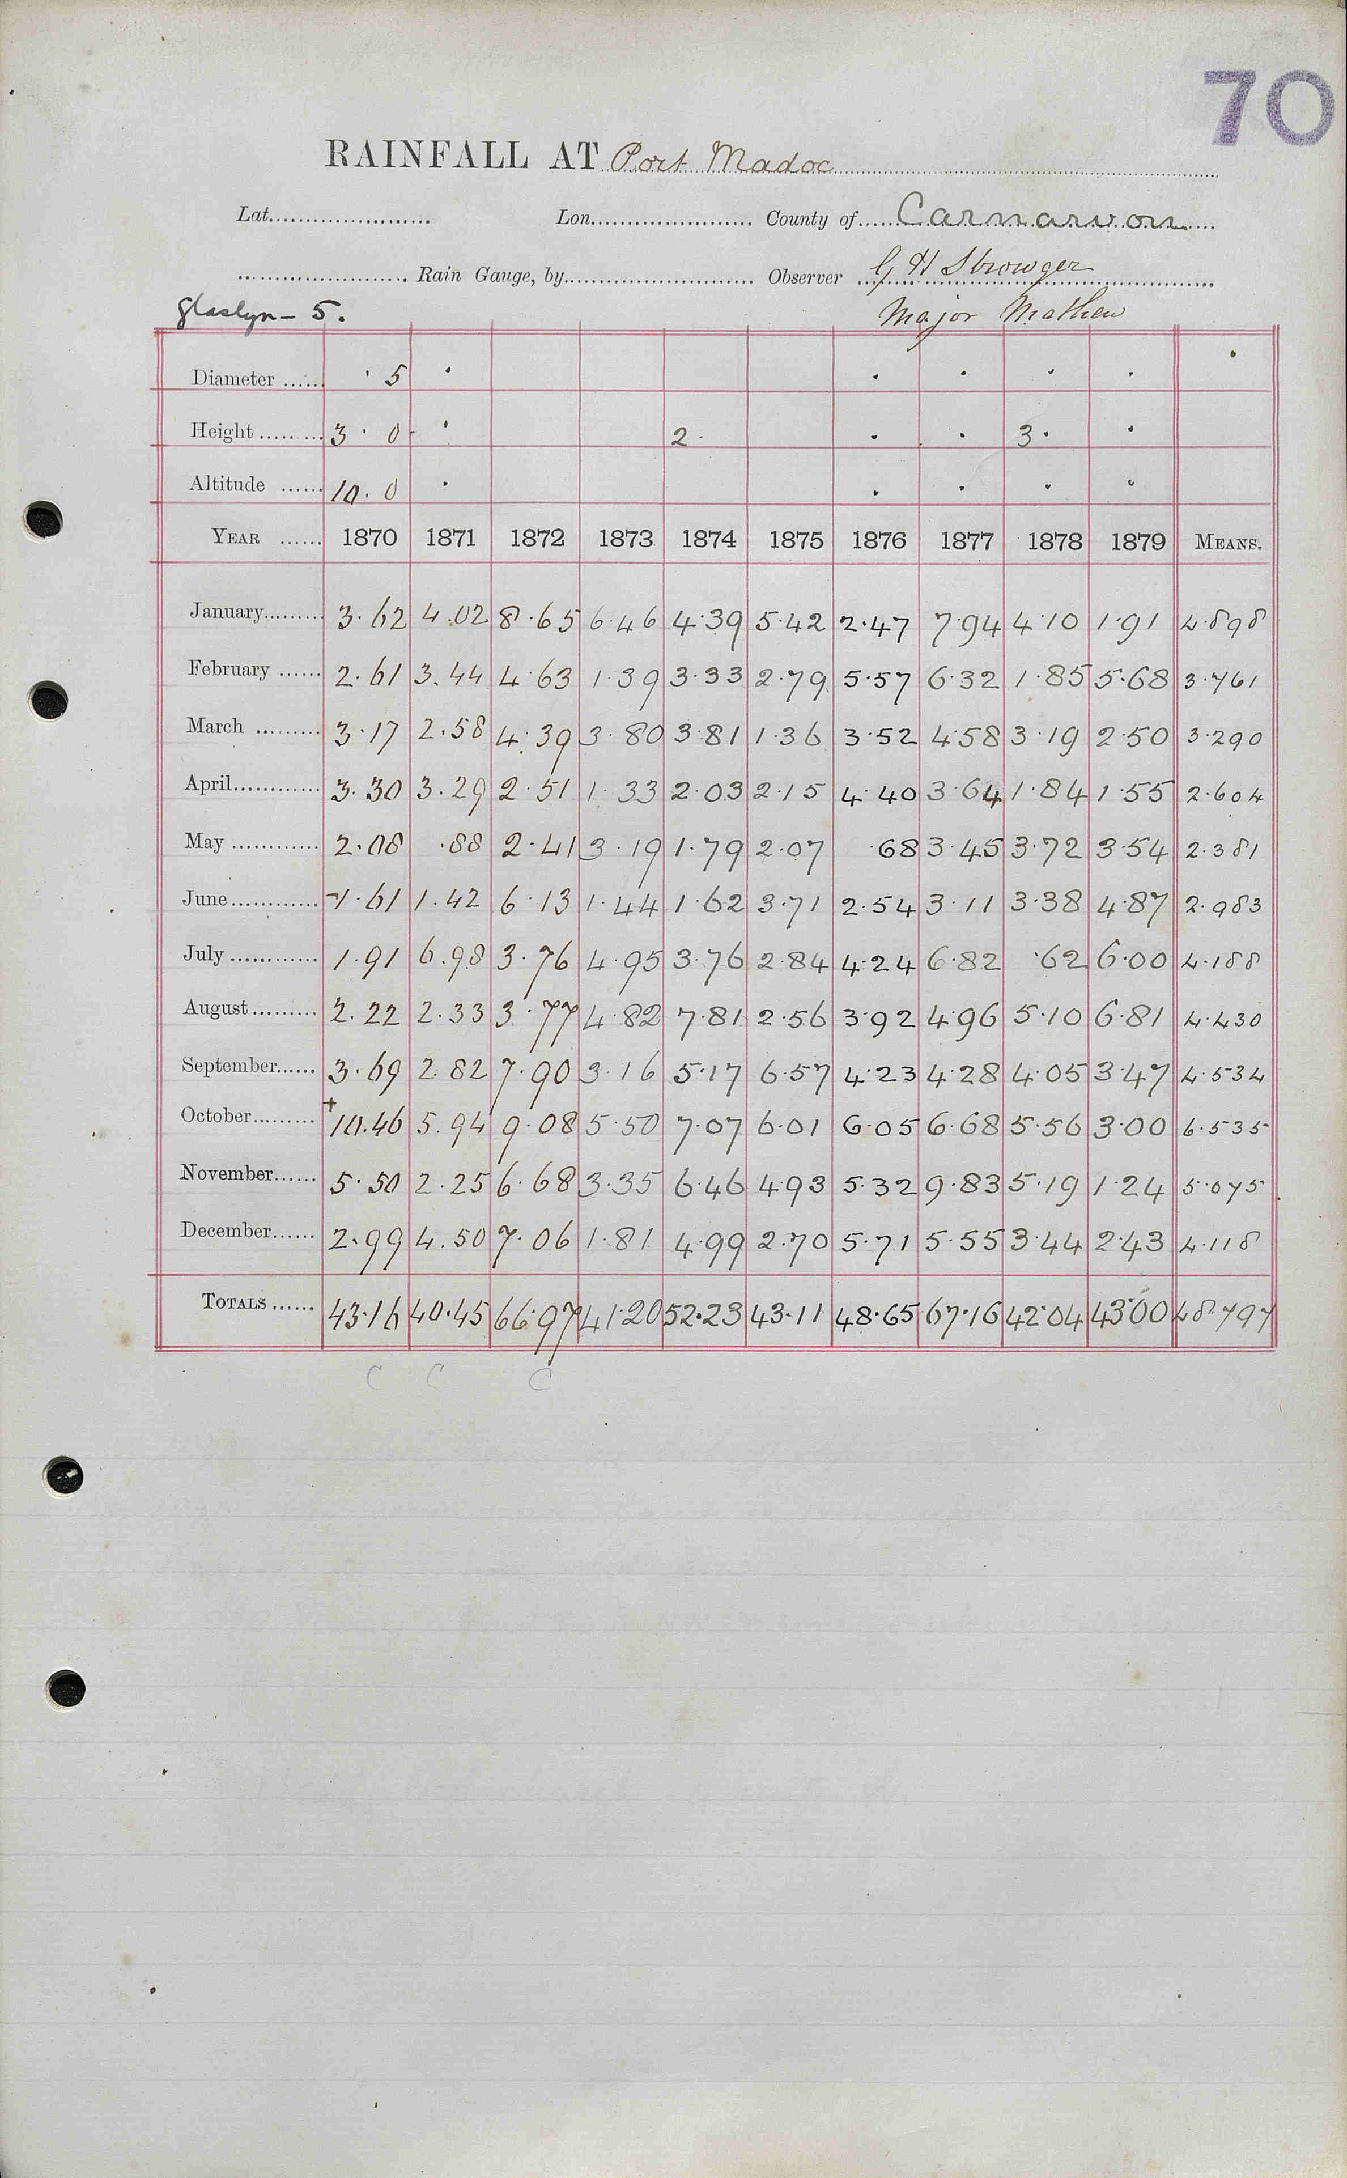 70
RAINFALL AT Port Madoc
Lat. Lon. County of Carnarvon
Rain Gauge, by Observer G H Strowger
Glaslyn - 5. Major Mathew
Diameter · 5 · · · · · ·
Height 3 · 0 · 2 · · · 3 · ·
Altitude 10 · 0 · · · · ·
YEAR 1870 1871 1872 1873 1874 1875 1876 1877 1878 1879 MEANS.
January 3.62 4.02 8.65 6.46 4.39 5.42 2.47 7.94 4.10 1.91 4.898
February 2.61 3.44 4.63 1.39 3.33 2.79 5.57 6.32 1.85 5.68 3.761
March 3.17 2.58 4.39 3.80 3.81 1.36 3.52 4.58 3.19 2.50 3.290
April 3.30 3.29 2.51 1.33 2.03 2.15 4.40 3.64 1.84 1.55 2.604
May 2.08 .88 2.41 3.19 1.79 2.07 .68 3.45 3.72 3.54 2.381
June -1.61 1.42 6.13 1.44 1.62 3.71 2.54 3.11 3.38 4.87 2.983
July 1.91 6.98 3.76 4.95 3.76 2.84 4.24 6.82 .62 6.00 4.188
August 2.22 2.33 3.77 4.82 7.81 2.56 3.92 4.96 5.10 6.81 4.430
September 3.69 2.82 7.90 3.16 5.17 6.57 4.23 4.28 4.05 3.47 4.534
October +10.46 5.94 9.08 5.50 7.07 6.01 6.05 6.68 5.56 3.00 6.535
November 5.50 2.25 6.68 3.35 6.46 4.93 5.32 9.83 5.19 1.24 5.075
December 2.99 4.50 7.06 1.81 4.99 2.70 5.71 5.55 3.44 2.43 4.118
TOTALS 43.16 40.45 66.97 41.20 52.23 43.11 48.65 67.16 42.04 43.00 48.797
C C C